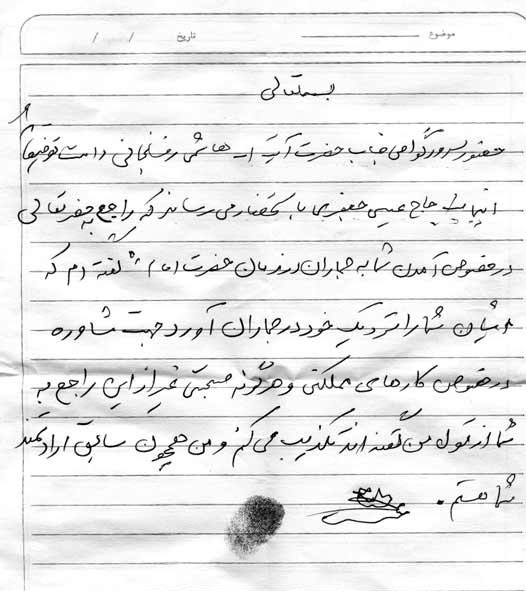 موضوع تاریخ / /
بسمه‌تعالی
حضور سرور گرامی جناب حضرت آیت ا... هاشمی رفسنجانی دامت توفیقاً
اینجانب حاج عیسی جعفری با استحضار می رساند که راجع به
در خصوص آمدن شما به جماران در زمان حضرت امام ره گفته ام که
ایشان شما را نزدیک خود در جماران آورد جهت مشاوره
در خصوص کارهای مملکتی و هرگونه صحبتی غیر از این راجع به
شما از قول من گفته اند تکذیب می کنم و من همچون سابق ارادتمند
شما هستم .